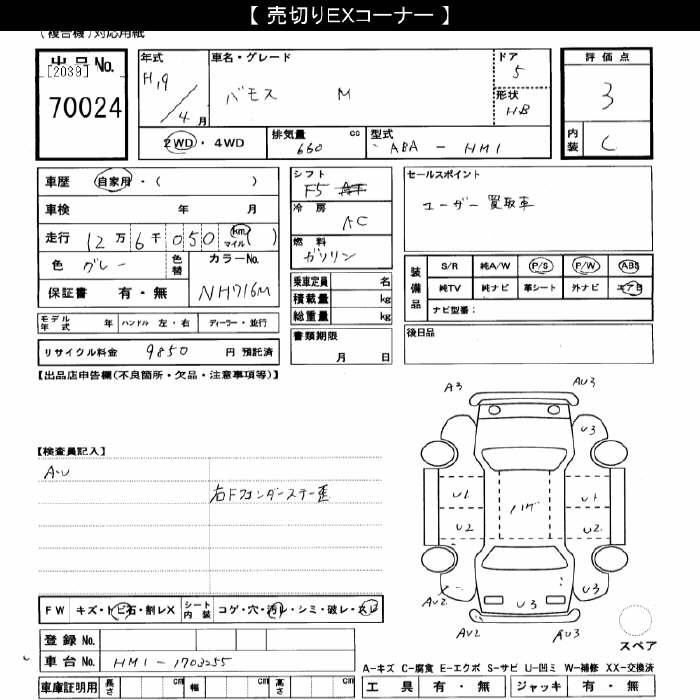 【 売切りEXコーナー 】
(複合機)対応用紙
出品No.
[2039]
70024
年式
H19/4月
車名・グレード
バモス M
ドア
5
形状
HB
評価点
3
内装
C
2WD・4WD
排気量 cc
660
型式
ABA - HM1
車歴 自家用・( )
車検 年 月
走行 12万6千050 km マイル ( )
色 グレー 色替 カラーNo.
保証書 有・無 NH716M
モデル年式 年 ハンドル 左・右 ディーラー・並行
リサイクル料金 9850 円 預託済
シフト
F5
冷房
AC
燃料
ガソリン
乗車定員 名
積載量 kg
総重量 kg
書類期限
月 日
セールスポイント
ユーザー買取車
装備品
S/R 純A/W P/S P/W ABS
純TV 純ナビ 革シート 外ナビ エアB
ナビ型番:
後日品
【出品店申告欄(不良箇所・欠品・注意事項等)】
【検査員記入】
A・U
右Fフェンダーステー歪
A3 AU3
U3
U1 ハゲ U1
U2 U2
AU2 U3 U3
AU2 AU3
スペア
FW キズ・トビ石・割レX シート内装 コゲ・穴・汚レ・シミ・破レ・スレ
登録No.
車台No. HM1-1703255
車庫証明用 長さ cm 幅 cm 高さ cm
A-キズ C-腐食 E-エクボ S-サビ U-凹ミ W-補修 XX-交換済
工具 有・無 ジャッキ 有・無